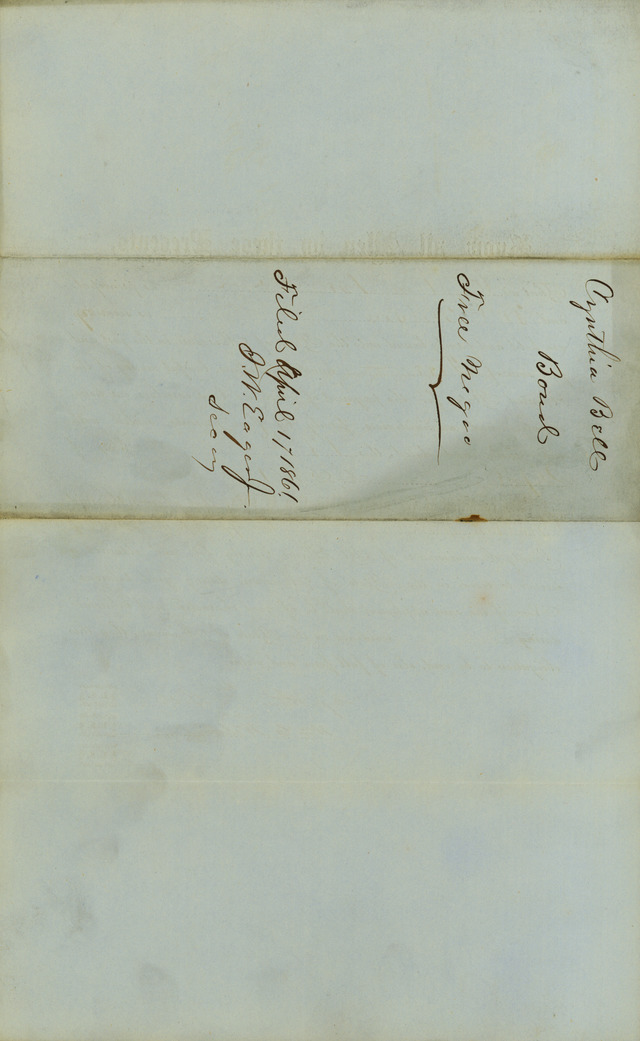 Cynthia Bell
Bond
Free Negro
Filed April 17 1861
J. W. Eager J.
Secy